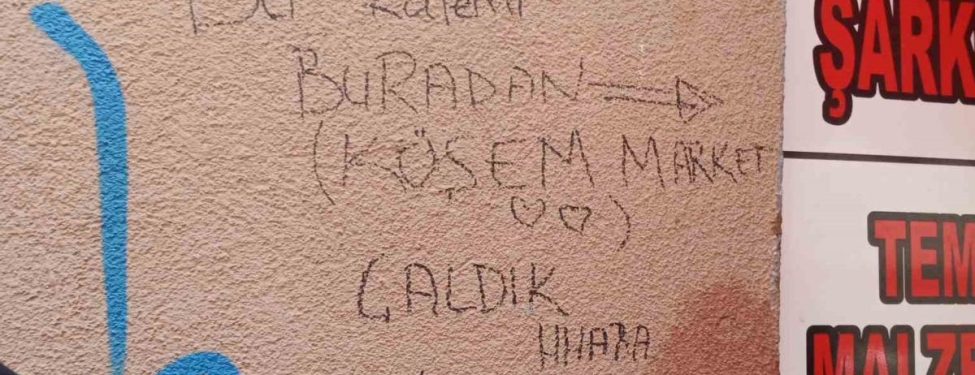 Bu kalemi
BURADAN →
(KÖŞEM MARKET
♡♡)
ÇALDIK
ŞARK
TEM
MALZE